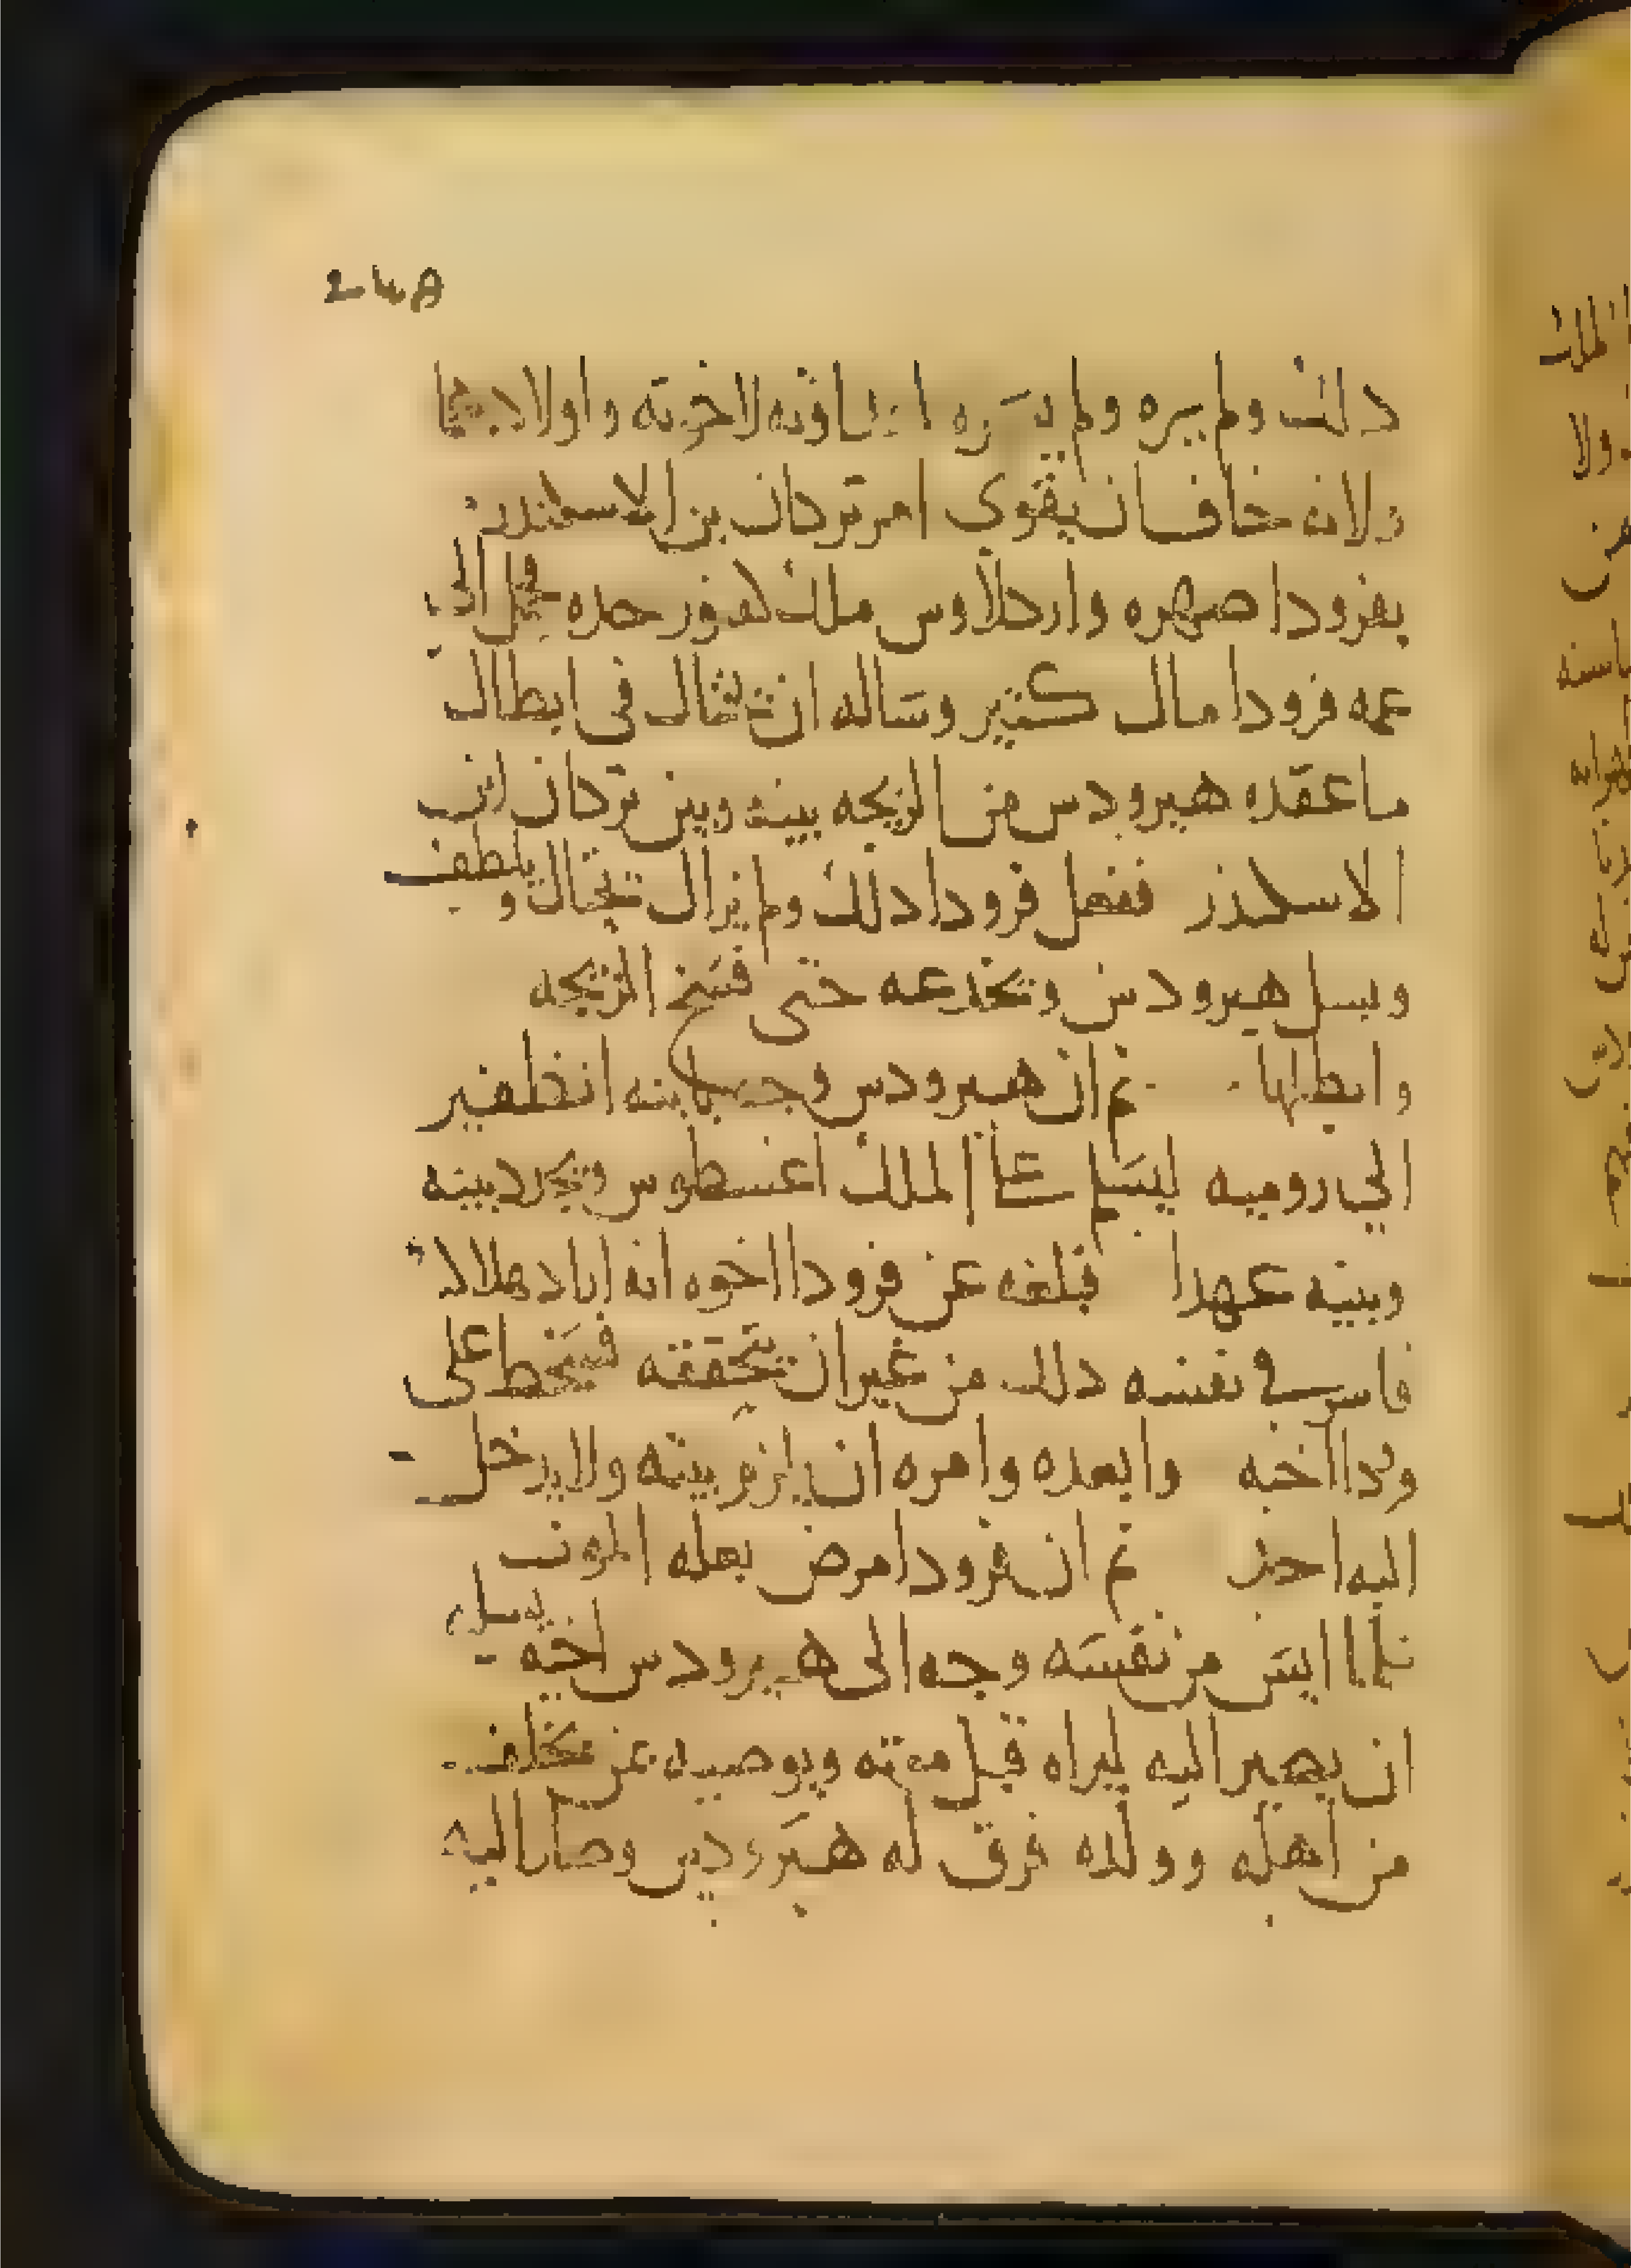 ٢٤٨
دلك ولم يره ولم لاخوته واولادهما
ولانه خاف ان يقوى امر تركان بن الاسكندر
بفرودا صهره واردلاوس ملك حده فحمل الى
عمه فرودا مال كتير وساله ان تحتال فى ابطال
ما عقده هيرودس من الزيجه بينه وبين تركان ابن
الاسكندر ففعل فرودا دلك ولم يزال تحتال ويلطف
ويسل هيرودس وتخدعه حتى فسخ الزيجه
وابطلها ثم ان هيرودس وجه بابنه انطفير
الى روميه ليسلم على الملك اغسطوس وتجدد بينه
وبينه عهدا فبلغه عن فرودا اخوه انه اراد هلاكه
فاسر فى نفسه دلك من غير ان تتحققه فسخط على
ودا اخيه وابعده وامره ان يلزم بيته ولا يدخل
اليه احد ثم ان فرودا مرض بعله الموت
فلما ايس من نفسه وجه الى هيرودس اخيه يساله
ان يصير اليه ليراه قبل موته ويوصيه عن تخلف
من اهله وولده فرق له هيرودس وصار اليه